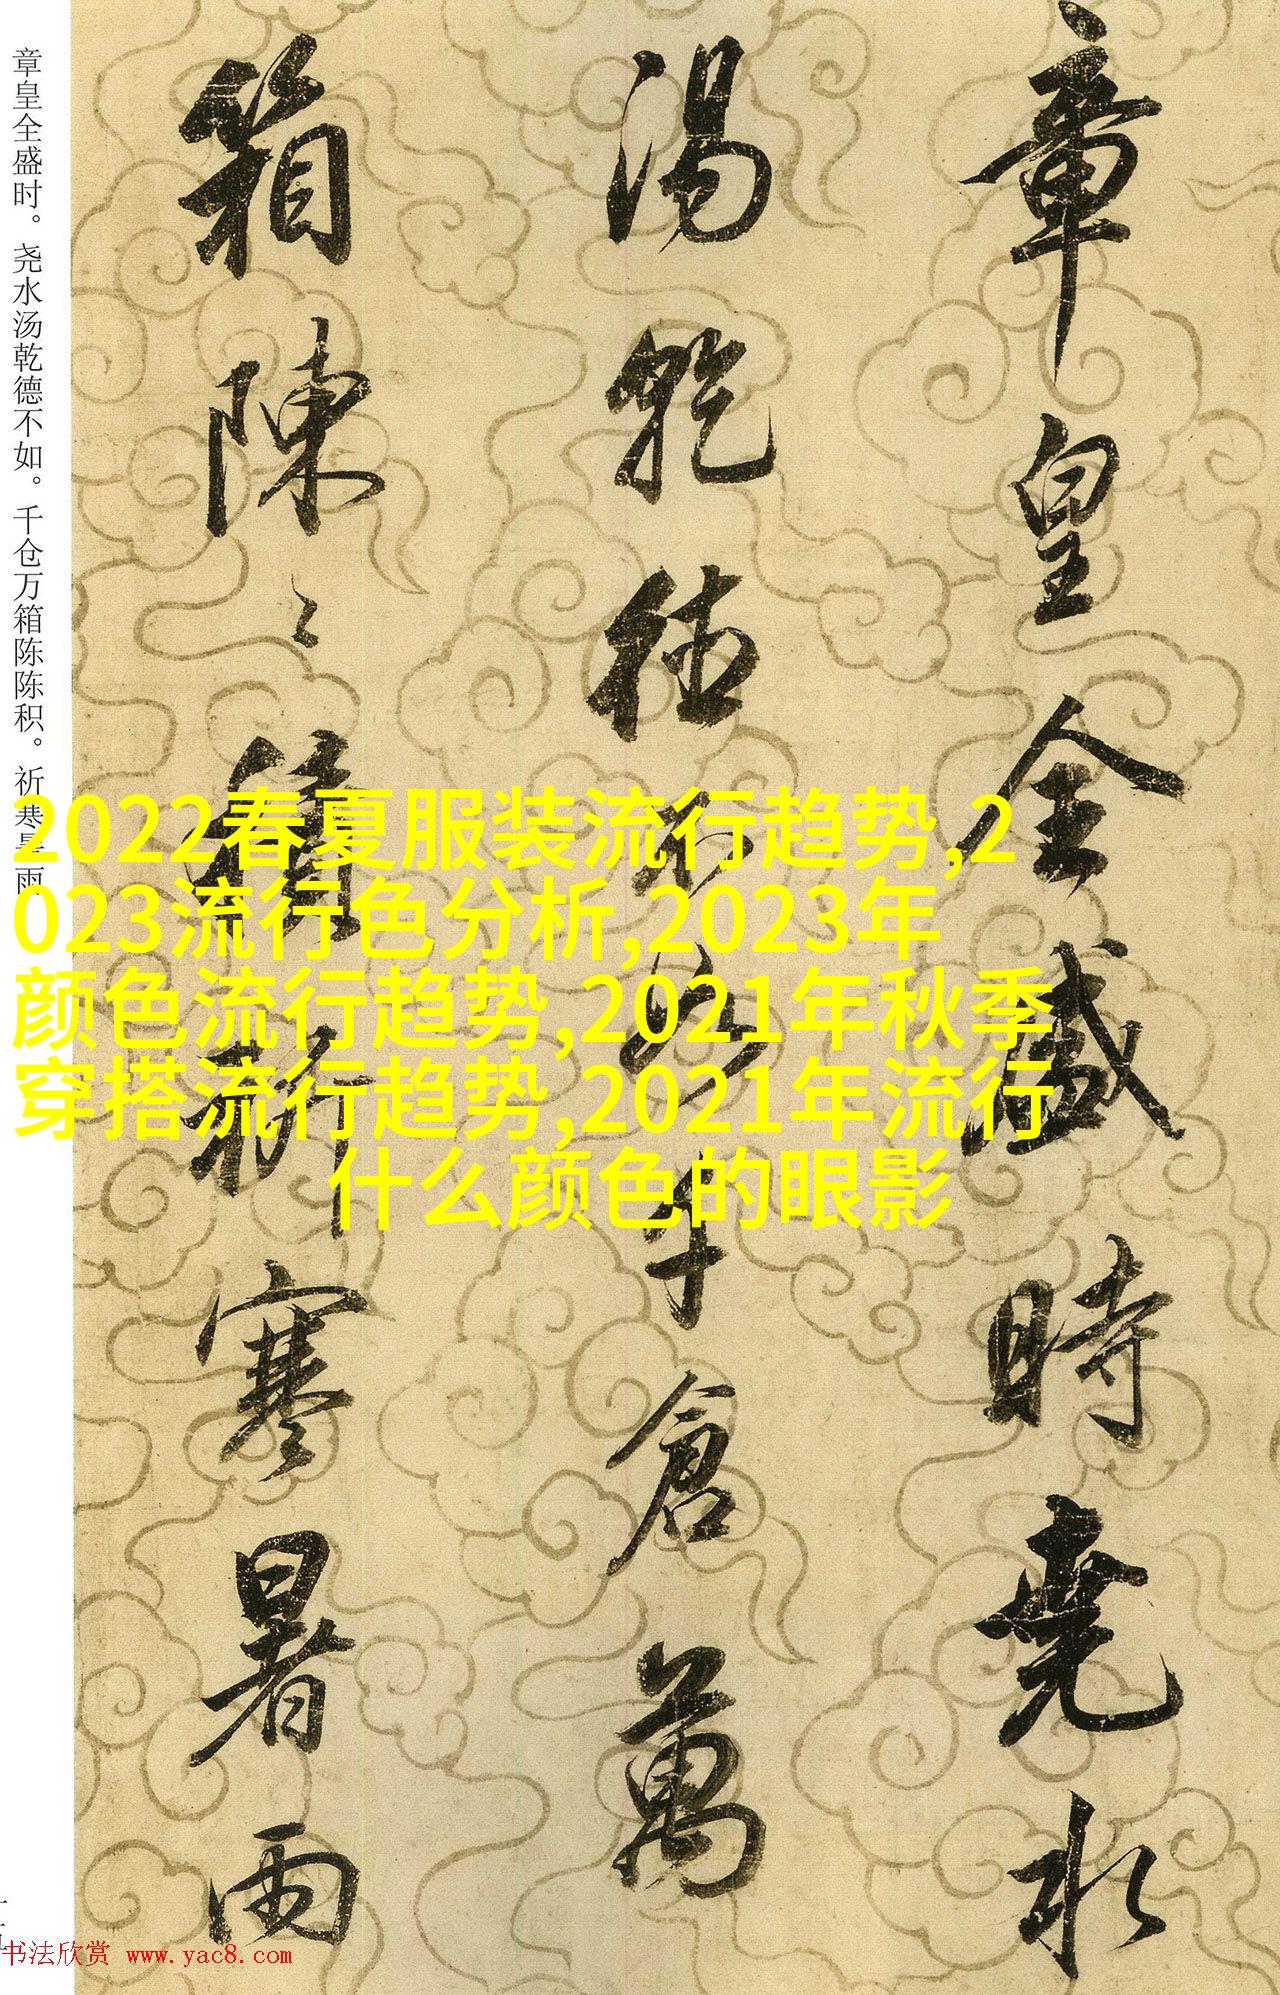 章皇全盛時堯水
湯乾德不如千倉萬
箱陳〻積祈寒暑雨
章皇全盛时。尧水汤乾德不如。千仓万箱陈陈积。祈寒暑雨
2022春夏服装流行趋势,2
023流行色分析,2023年
颜色流行趋势,2021年秋季
穿搭流行趋势,2021年流行
什么颜色的眼影
书法欣赏 www.yac8.com